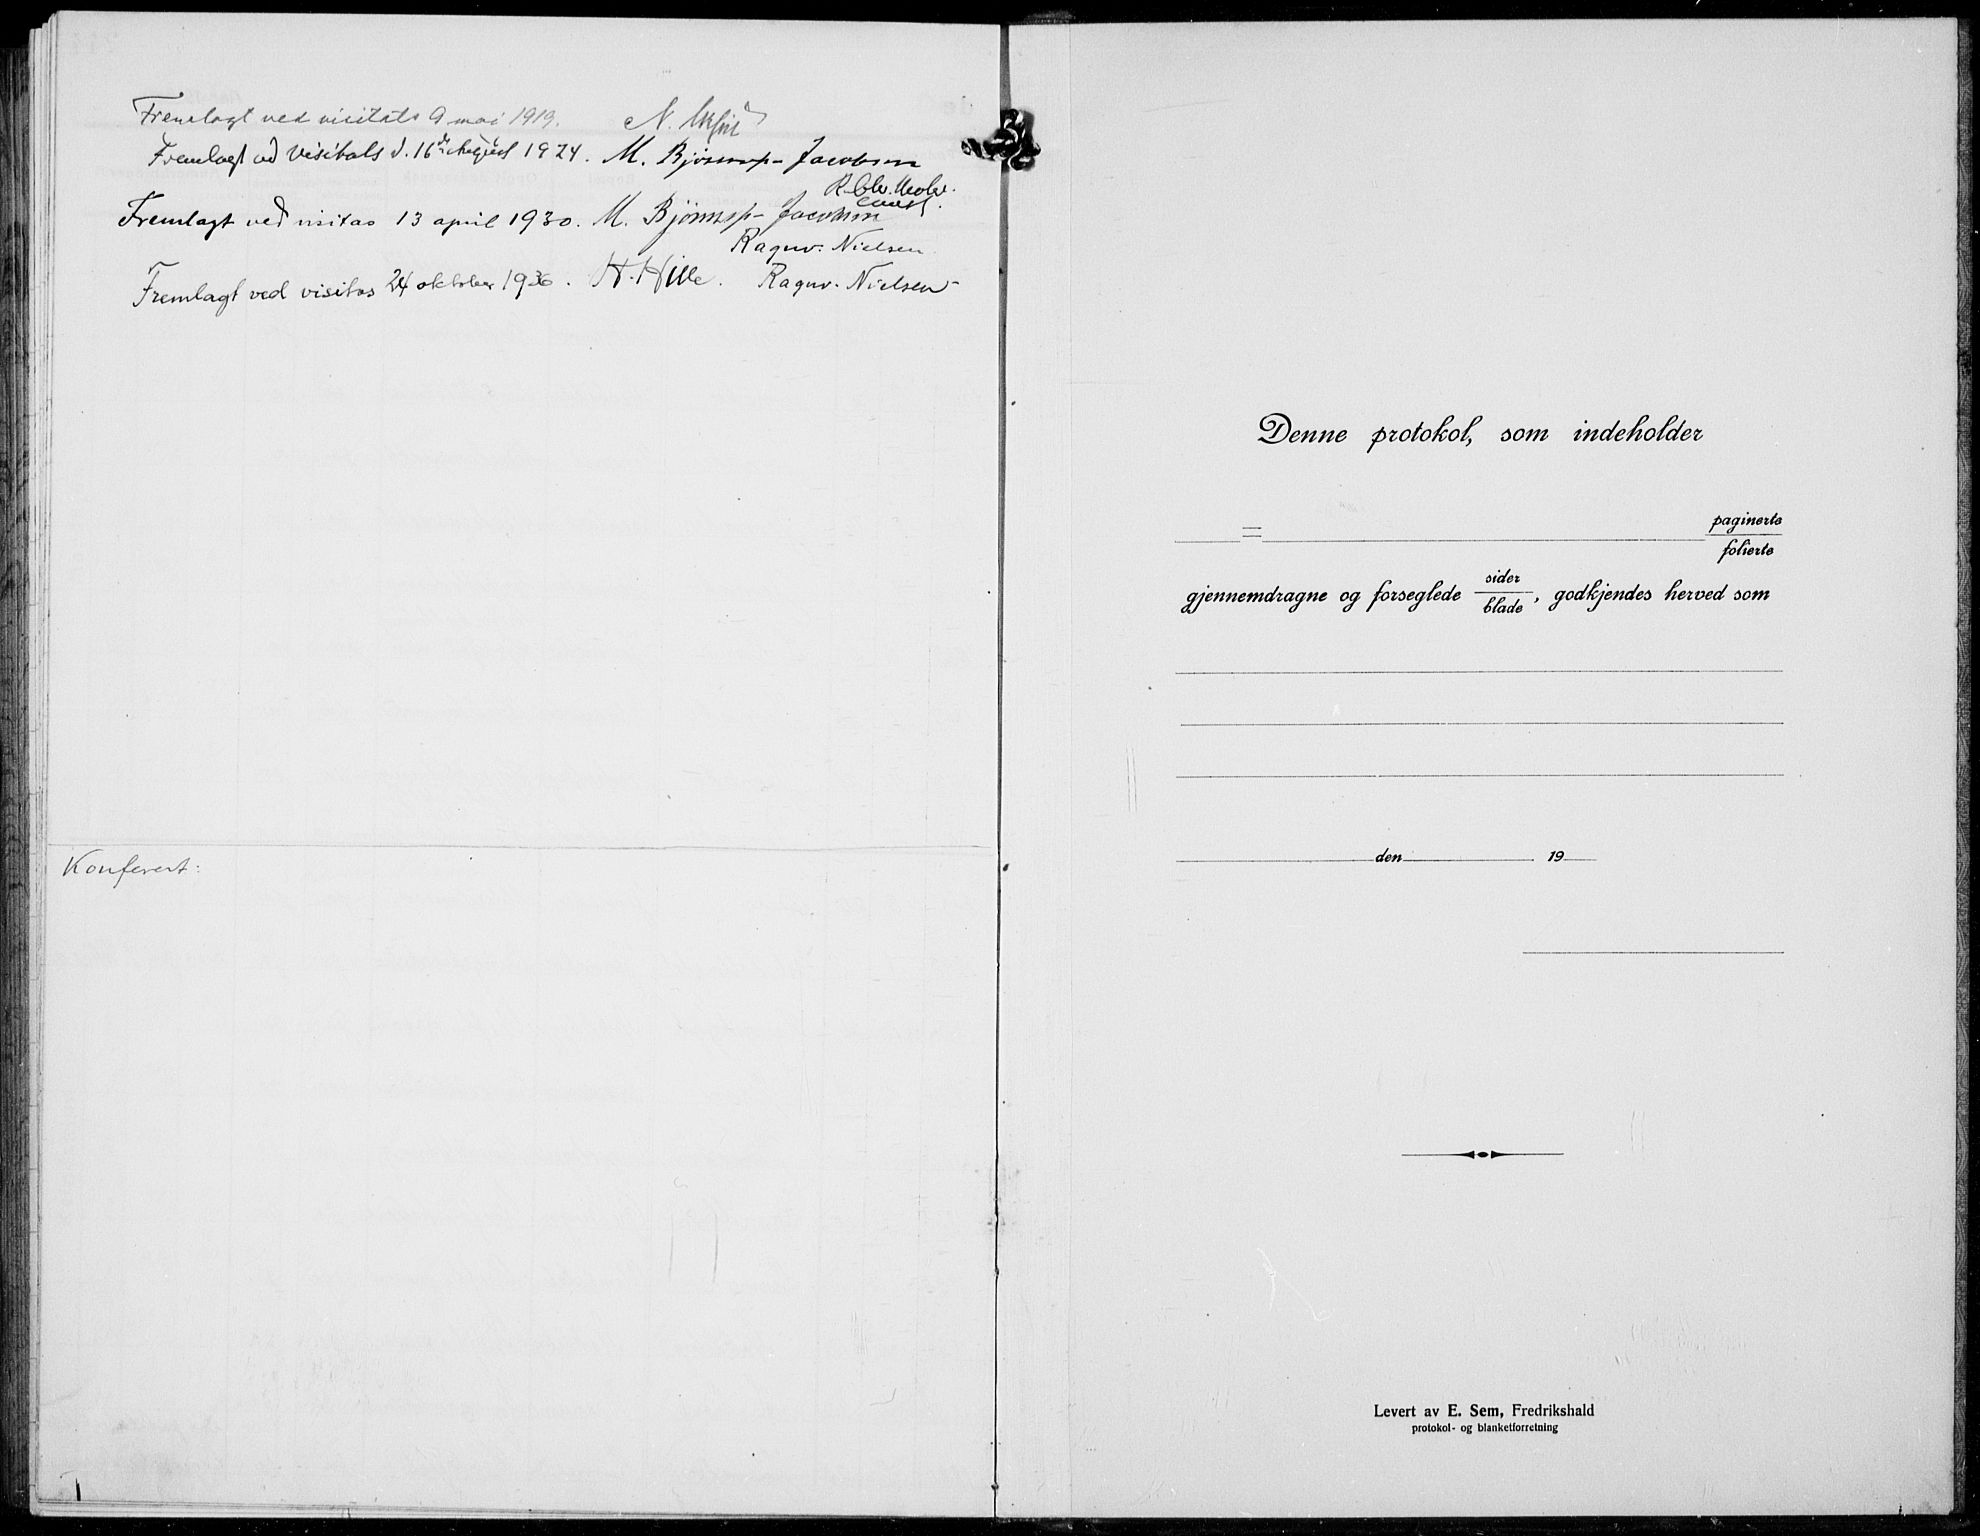 Fremlagt ved visitats 9 mai 1919. N.
Fremlagt ved Visitats d. 16de August 1924. M. Bjønnesp- Jacobsen
Fremlagt ved visitas 13 april 1930. M. Bjønnsp- Jacobsen
Ragnv. Nielsen
Fremlagt ved visitas 24 oktober 1936. H. Hille. Ragnv. Nielsen
Konfereret:
Denne protokol, som indeholder
= paginerte
folierte
gjennemdragne og forseglede sider
blade, godkjendes herved som
den 19
Levert av E. Sem, Fredrikshald
protokol- og blanketforretning